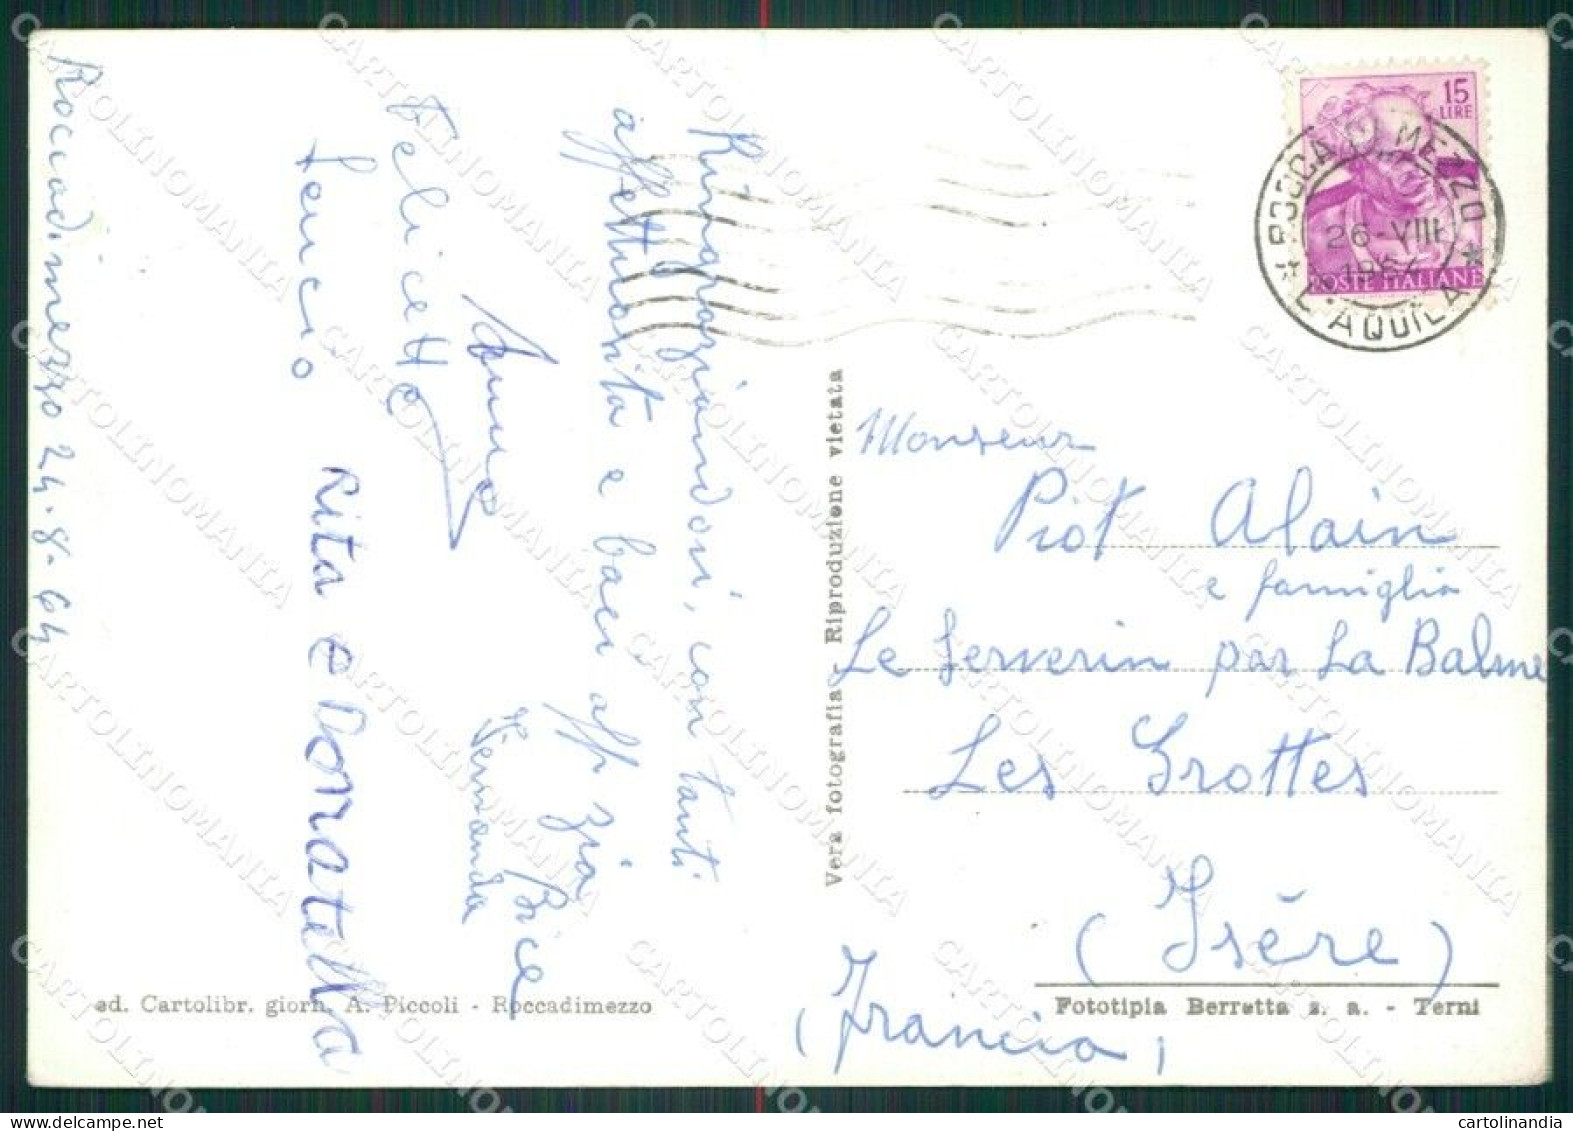 Roccadimezzo 24.8.64
Ringraziandovi, con tanti
affettuosità e baci aff. zia
Bice
Fernanda
Felicetto
Rita e Donatella
15
LIRE
POSTE ITALIANE
ROCCA DI MEZZO
26-VIII
1964
* L'AQUILA *
Vera fotografia - Riproduzione vietata
Monseur
Piot Alain
e famiglia
Le Serverin par La Balme
Les Grottes
(Isère)
(Francia)
ed. Cartolibr. giorn. A. Piccoli - Roccadimezzo
Fototipia Berretta s. a. - Terni
CARTOLINOMANIA
cartolinandia